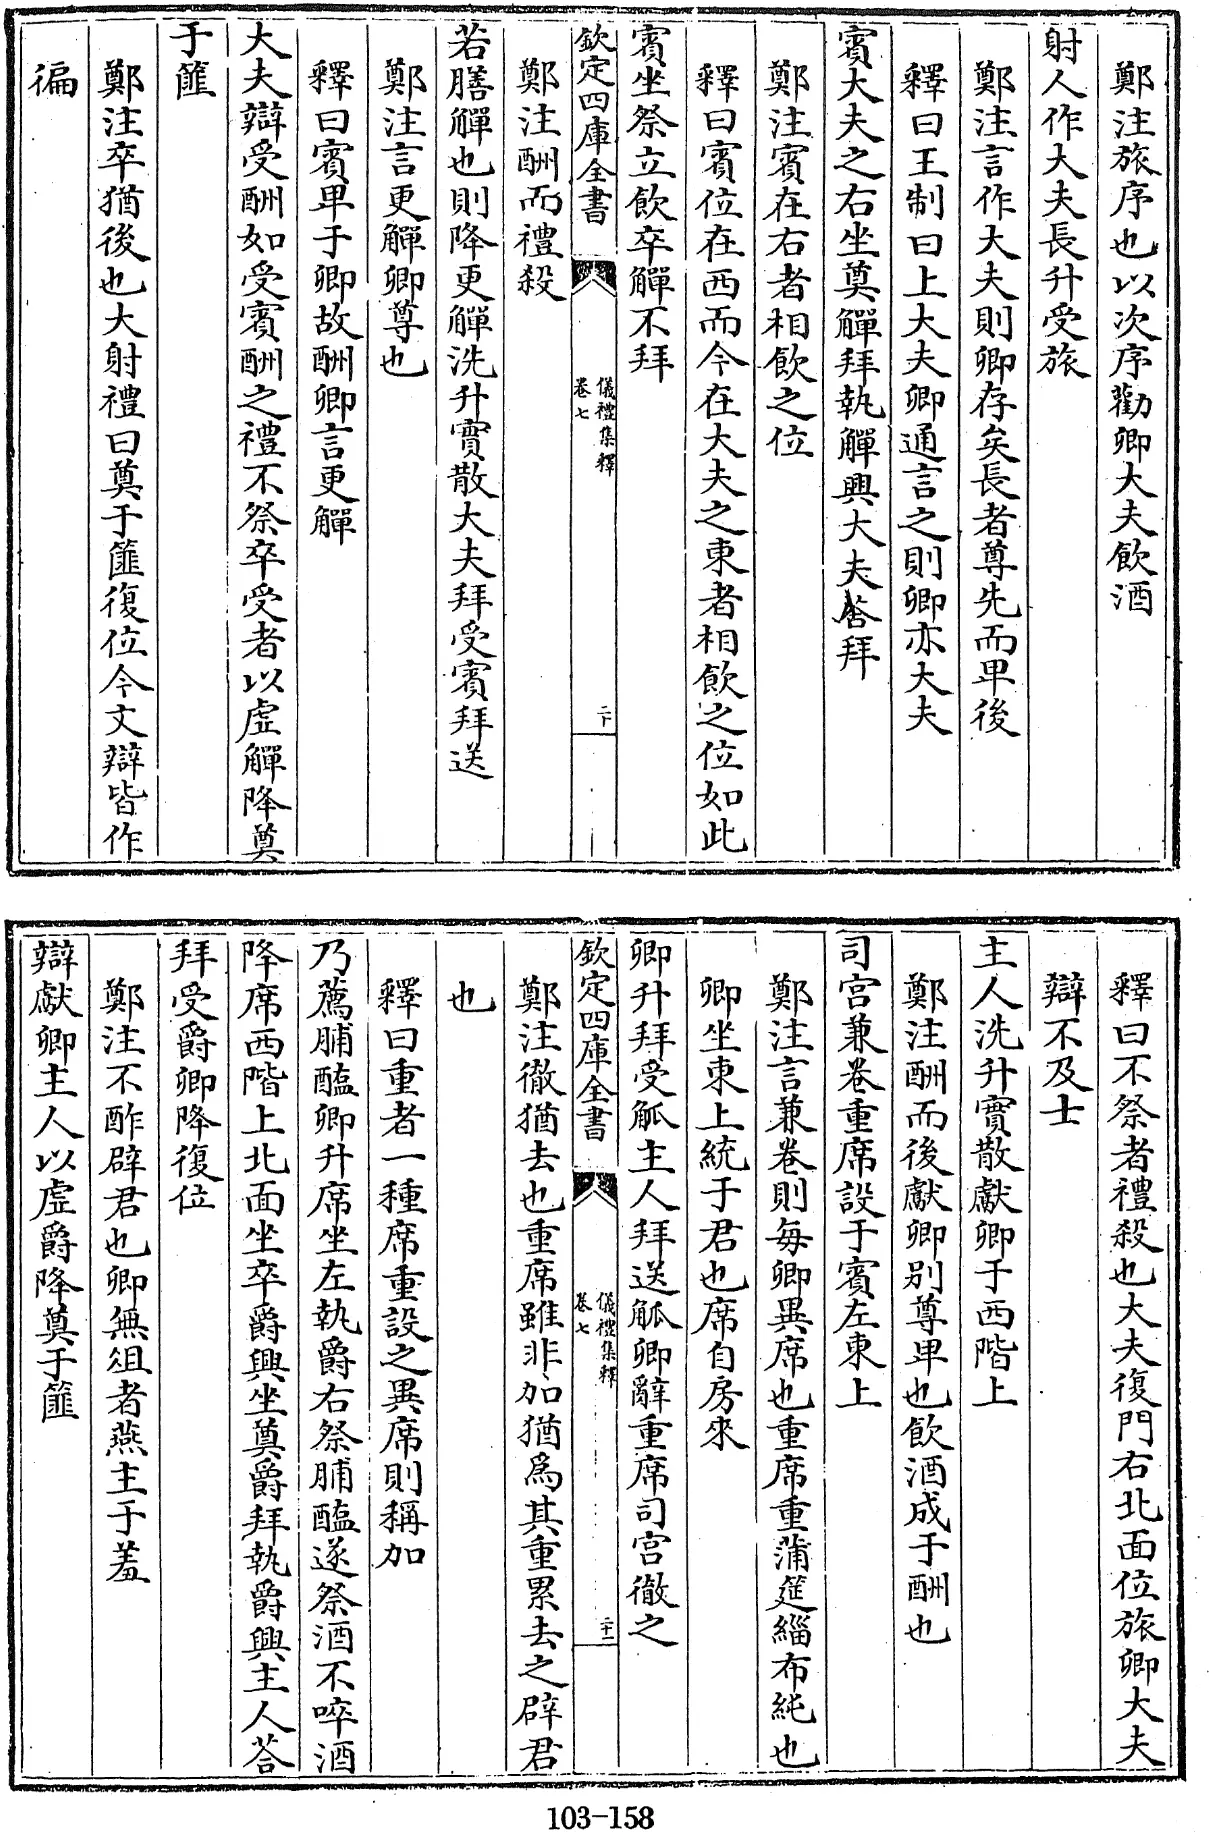 鄭注旅序也以次序勸卿大夫飲酒
射人作大夫長升受旅
鄭注言作大夫則卿存矣長者尊先而卑後
釋曰王制曰上大夫卿通言之則卿亦大夫
賓大夫之右坐奠觶拜執觶興大夫答拜
鄭注賓在右者相飲之位
釋曰賓位在西而今在大夫之東者相飲之位如此
賓坐祭立飲卒觶不拜
欽定四庫全書
儀禮集釋
卷七
二十
鄭注酬而禮殺
若膳觶也則降更觶洗升實散大夫拜受賓拜送
鄭注言更觶卿尊也
釋曰賓卑于卿故酬卿言更觶
大夫辯受酬如受賓酬之禮不祭卒受者以虛觶降奠
于篚
鄭注卒猶後也大射禮曰奠于篚復位今文辯皆作
徧
釋曰不祭者禮殺也大夫復門右北面位旅卿大夫
辯不及士
主人洗升實散獻卿于西階上
鄭注酬而後獻卿别尊卑也飲酒成于酬也
司宫兼卷重席設于賓左東上
鄭注言兼卷則每卿異席也重席重蒲筵緇布純也
卿坐東上統于君也席自房來
卿升拜受觚主人拜送觚卿辭重席司宫徹之
欽定四庫全書
儀禮集釋
卷七
二十一
鄭注徹猶去也重席雖非加猶為其重累去之辟君
也
釋曰重者一種席重設之異席則稱加
乃薦脯醢卿升席坐左執爵右祭脯醢遂祭酒不啐酒
降席西階上北面坐卒爵興坐奠爵拜執爵興主人荅
拜受爵卿降復位
鄭注不酢辟君也卿無俎者燕主于羞
辯獻卿主人以虛爵降奠于篚
103-158